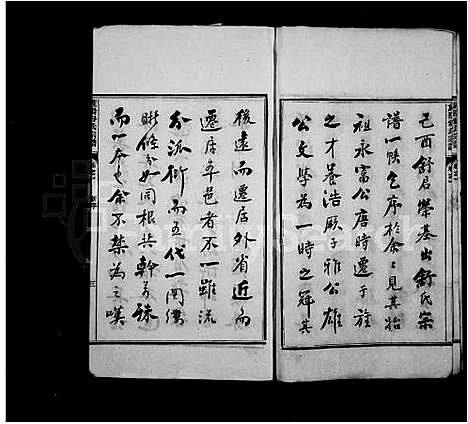 己酉舒君榮基出舒氏宗
譜一帙乞序於余余見其始
祖永富公唐時遷于旌
之才養浩厥子雅公雄
公文學為一時之冠其
後遠而遷居外省近而
遷居卒邑者不一雖流
分派衍而五代一圖
晰條分如同根共幹萬殊
而一本也余不禁為之嘆
FamilySearch